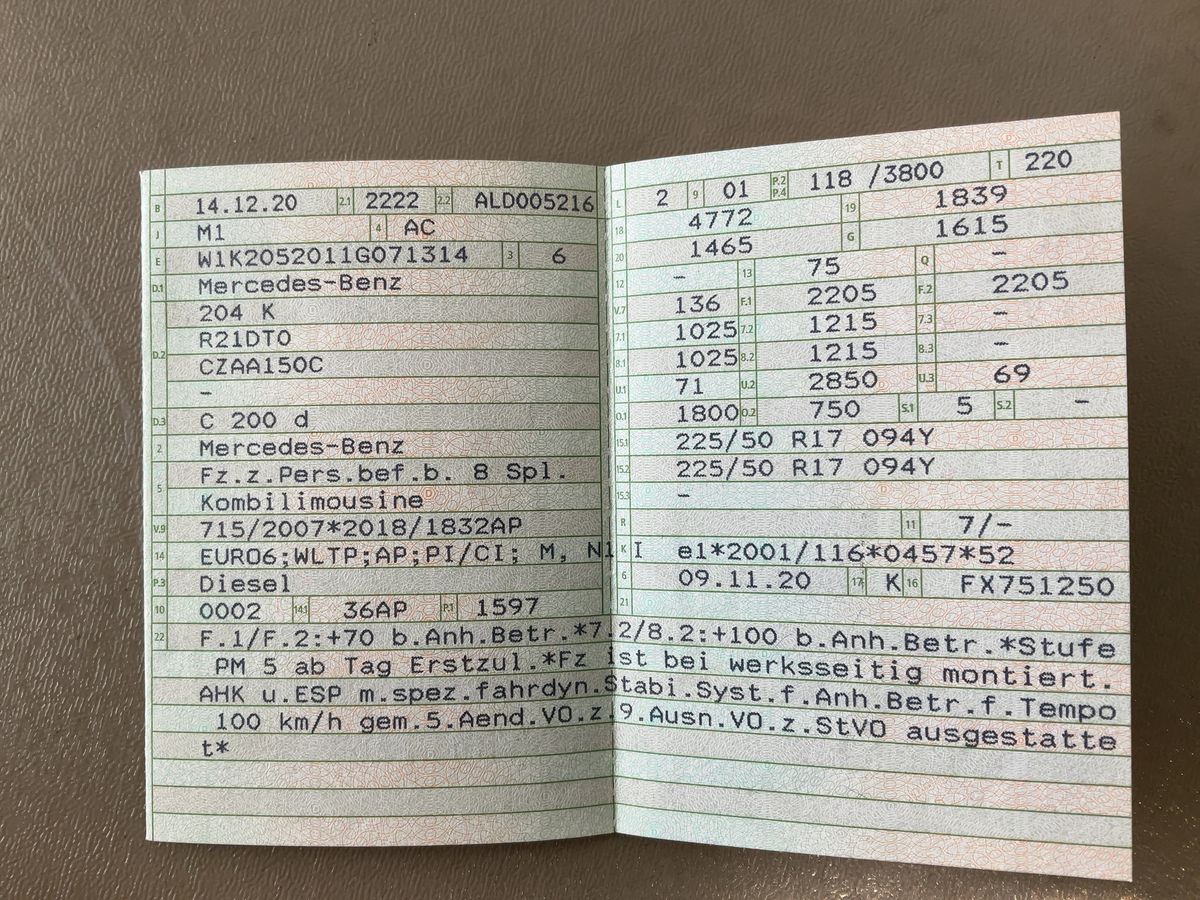 B 14.12.20 2.1 2222 2.2 ALD005216
J M1 4 AC
E W1K2052011G071314 3 6
D.1 Mercedes-Benz
204 K
D.2 R21DT0
CZAA150C
-
D.3 C 200 d
2 Mercedes-Benz
5 Fz.z.Pers.bef.b. 8 Spl.
Kombilimousine
V.9 715/2007*2018/1832AP
14 EURO6;WLTP;AP;PI/CI; M, N1 I
P.3 Diesel
10 0002 14.1 36AP P.1 1597
L 2 9 01 P.2 P.4 118 /3800 T 220
18 4772 19 1839
20 1465 G 1615
12 - 13 75 Q -
V.7 136 F.1 2205 F.2 2205
7.1 1025 7.2 1215 7.3 -
8.1 1025 8.2 1215 8.3 -
U.1 71 U.2 2850 U.3 69
O.1 1800 O.2 750 S.1 5 S.2 -
15.1 225/50 R17 094Y
15.2 225/50 R17 094Y
15.3 -
R 11 7/-
K e1*2001/116*0457*52
6 09.11.20 17 K 16 FX751250
21
22 F.1/F.2:+70 b.Anh.Betr.*7.2/8.2:+100 b.Anh.Betr.*Stufe
PM 5 ab Tag Erstzul.*Fz ist bei werksseitig montiert.
AHK u.ESP m.spez.fahrdyn.Stabi.Syst.f.Anh.Betr.f.Tempo
100 km/h gem.5.Aend.VO.z.9.Ausn.VO.z.StVO ausgestatte
t*